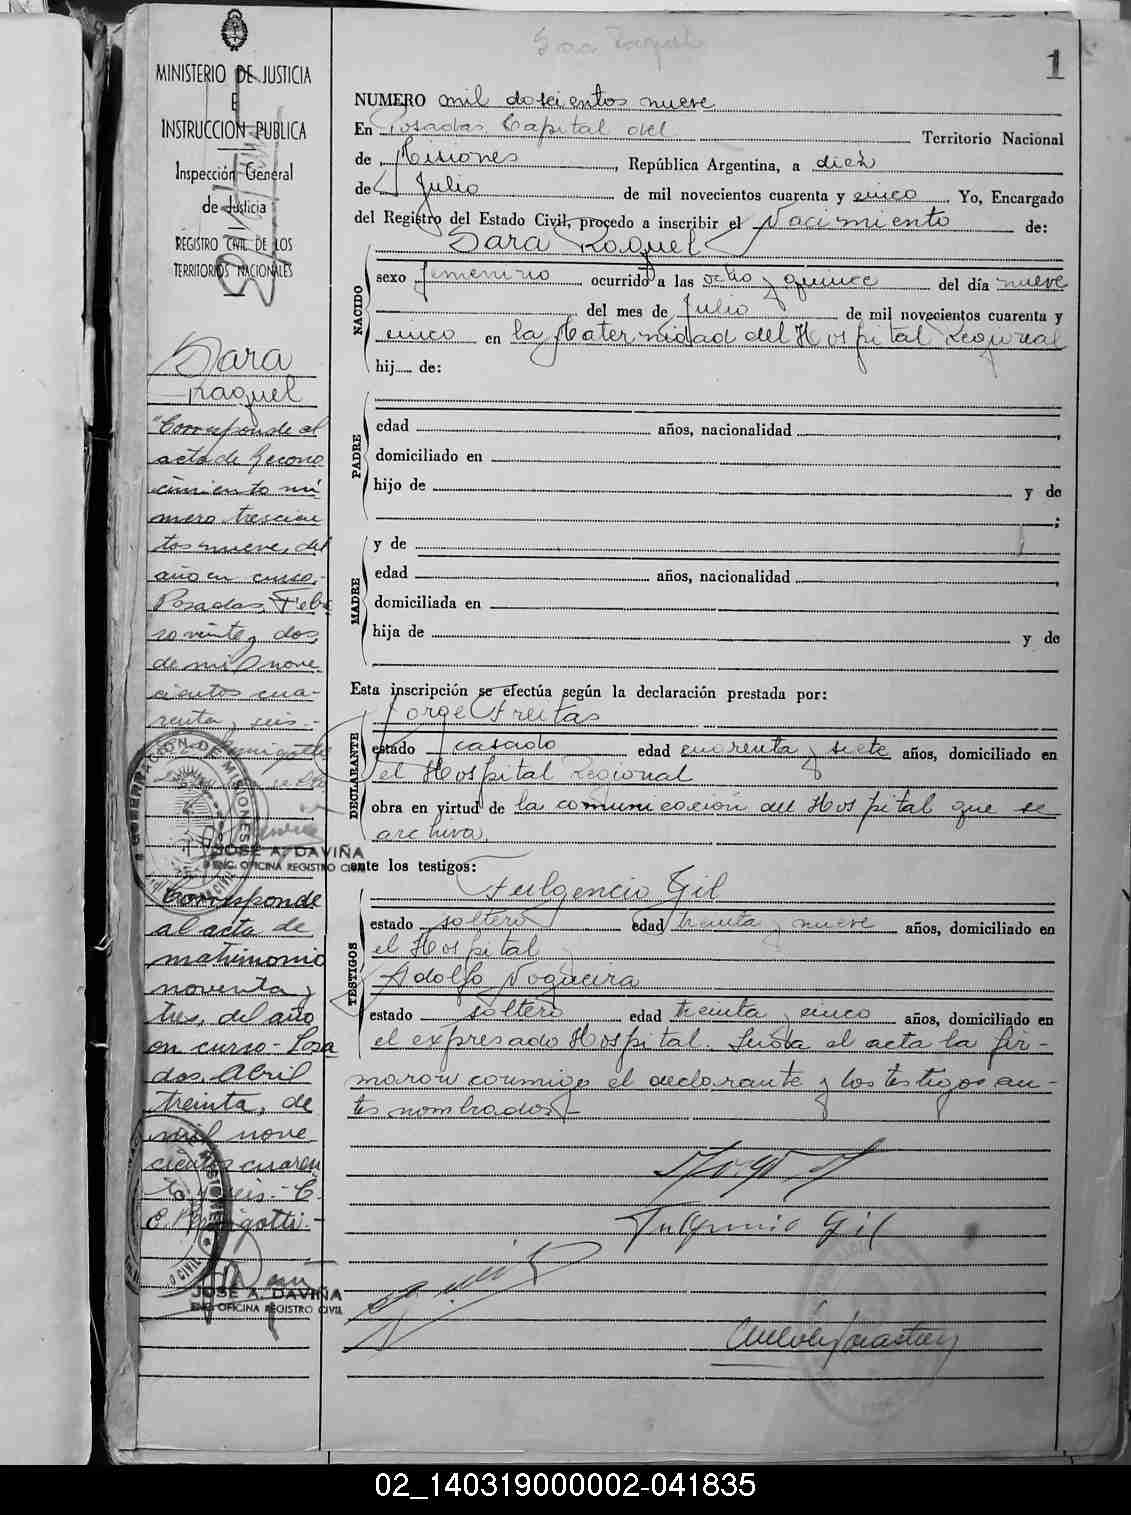 1
MINISTERIO DE JUSTICIA
E
INSTRUCCION PUBLICA
Inspección General
de Justicia
REGISTRO CIVIL DE LOS
TERRITORIOS NACIONALES
Sara
Raquel
"Corresponde al
acta de Recono
cimiento nú
mero trescien
tos nueve, del
año en curso,-
Posadas, Febre
ro veinte y dos,
de mil nove
cientos cua-
renta y seis.-
GOBERNACION DE MISIONES
JOSE A. DAVIÑA
ENC. OFICINA REGISTRO CIVIL
Corresponde
al acta de
matrimonio
noventa y
tres, del año
en curso - Posa
das, Abril
treinta, de
mil nove
cientos cuaren
ta y seis.- E.
JOSE A. DAVIÑA
ENC. OFICINA REGISTRO CIVIL
NUMERO mil doscientos nueve
En Posadas Capital del Territorio Nacional
de Misiones, República Argentina, a diez
de Julio de mil novecientos cuarenta y cinco Yo, Encargado
del Registro del Estado Civil, procedo a inscribir el Nacimiento de:
Sara Raquel
NACIDO
sexo femenino ocurrido a las ocho y quince del día nueve
del mes de Julio de mil novecientos cuarenta y
cinco en la Maternidad del Hospital Regional
hij..... de:
PADRE
edad años, nacionalidad
domiciliado en
hijo de y de
;
MADRE
y de
edad años, nacionalidad
domiciliada en
hija de y de
Esta inscripción se efectúa según la declaración prestada por:
Jorge Freitas
DECLARANTE
estado casado edad cuarenta y siete años, domiciliado en
el Hospital Regional
obra en virtud de la comunicación del Hospital que se
archiva.
ante los testigos:
Fulgencio Gil
TESTIGOS
estado soltero edad treinta y nueve años, domiciliado en
el Hospital y
Adolfo Nogueira
estado soltero edad treinta y cinco años, domiciliado en
el expresado Hospital. Leida el acta la fir-
maron conmigo el declarante y los testigos an-
tes nombrados.-
Fulgencio Gil
02_140319000002-041835